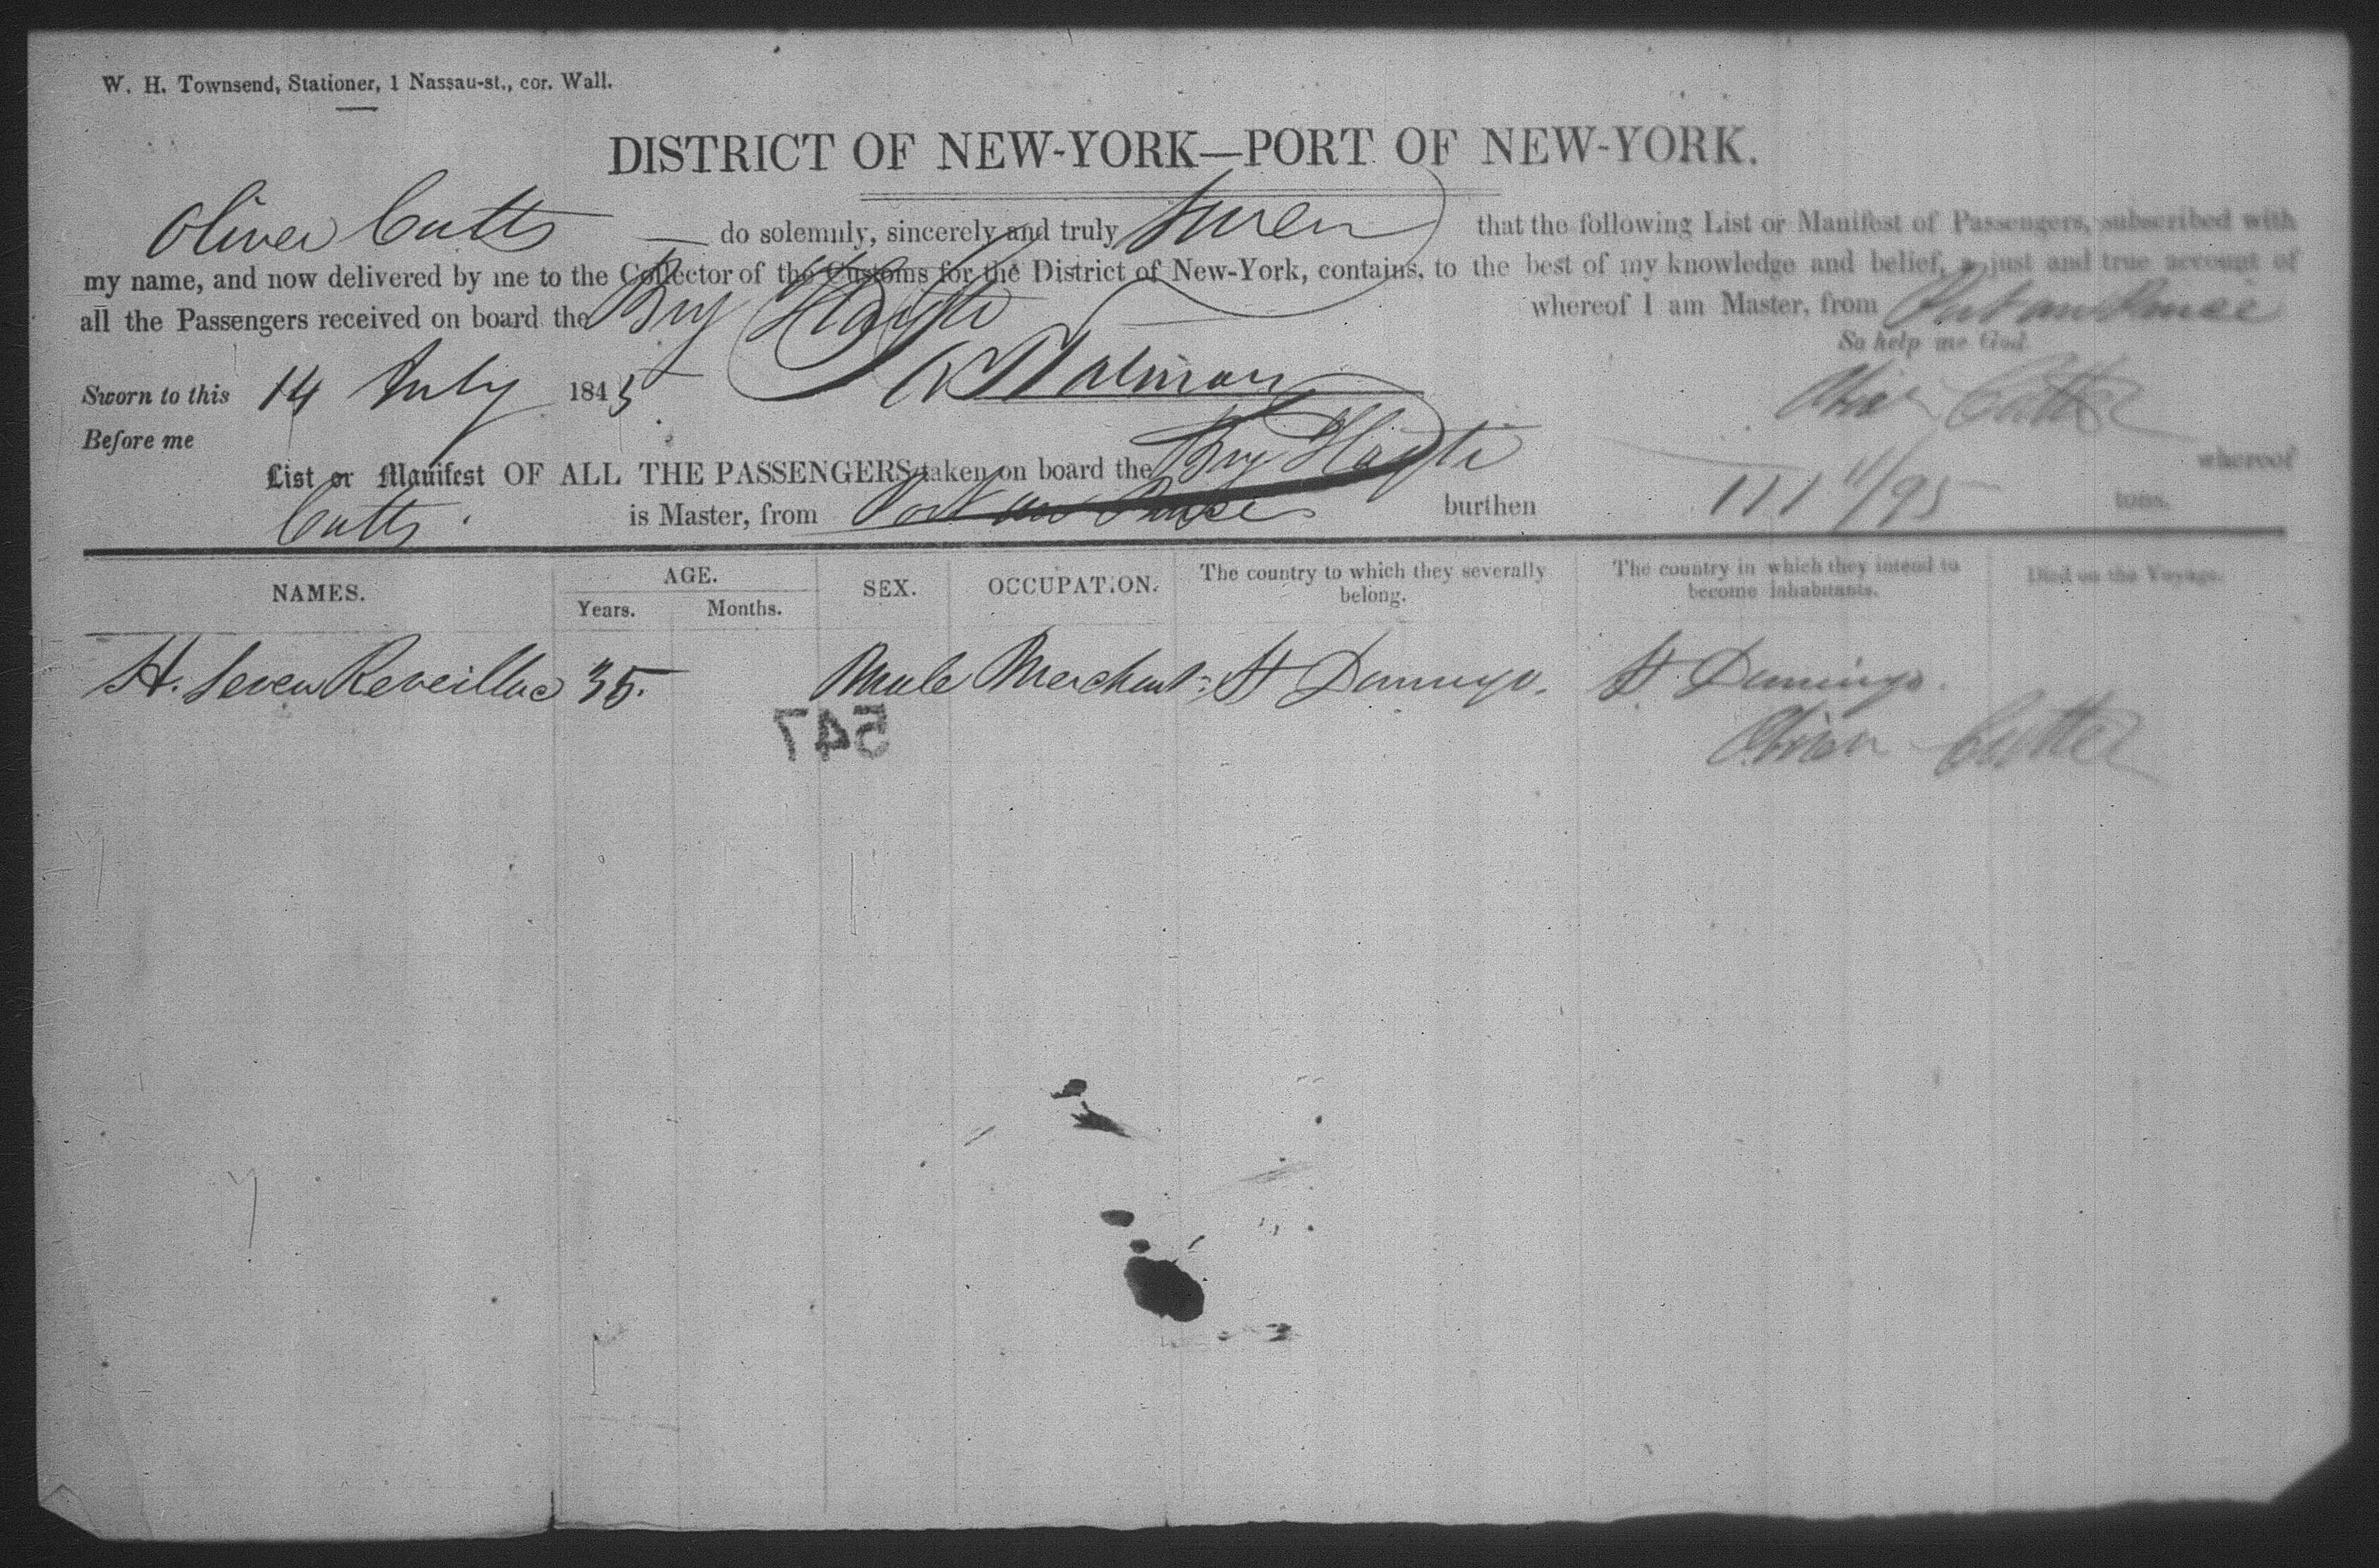 W. H. Townsend, Stationer, 1 Nassau-st., cor. Wall.
DISTRICT OF NEW-YORK—PORT OF NEW-YORK.
Oliver Cutts do solemnly, sincerely and truly swear that the following List or Manifest of Passengers, subscribed with
my name, and now delivered by me to the Collector of the Customs for the District of New-York, contains, to the best of my knowledge and belief, a just and true account of
all the Passengers received on board the Brig Hayti whereof I am Master, from Port au Prince
So help me God
Sworn to this 14 July 1845.
Oliver Cutts
Before me
List or Manifest OF ALL THE PASSENGERS taken on board the Brig Hayti whereof
Cutts. is Master, from Port au Prince burthen 111 11/95 tons.
NAMES. AGE. SEX. OCCUPATION. The country to which they severally belong. The country in which they intend to become inhabitants. Died on the Voyage.
Years. Months.
H. Seven 35. Male Merchant St Domingo. St Domingo.
547
Oliver Cutts